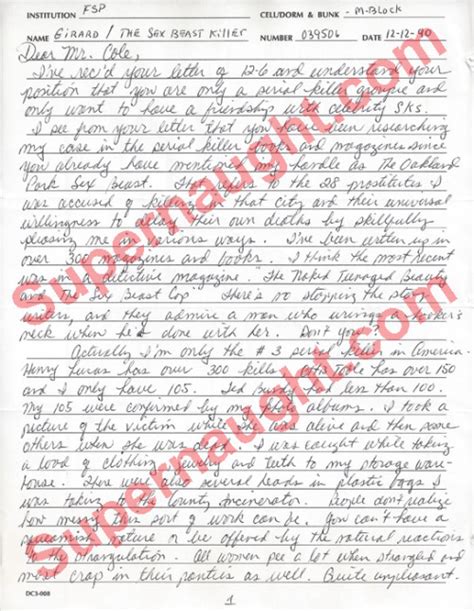 INSTITUTION FSP CELL/DORM & BUNK - M-BLOCK
NAME GIRARD / THE SEX BEAST KILLER NUMBER 039506 DATE 12-12-90
Dear Mr. Cole,
I've rec'd your letter of 12-6 and understand your
position that you are only a serial killer groupie and
only want to have a friendship with celebrity SKs.
I see from your letter that you have been researching
my case in the serial killer books and magazines since
you already have mentioned my handle as The Oakland
Park Sex Beast. This refers to the 28 prostitutes I
was accused of killing in that city and their universal
willingness to delay their own deaths by skillfully
pleasing me in various ways. I've been written up in
over 300 magazines and books. I think the most recent
was in a detective magazine "The Naked Teenaged Beauty
and The Sex Beast Cop. There's no stopping the story
writers, and they admire a man who wrings a hooker's
neck when he's done with her. Don't you?
Actually I'm only the #3 serial killer in America.
Henry Lucas has over 300 kills. Otis Toole has over 150
and I only have 105. Ted Bundy had less than 100.
My 105 were confirmed by my photo albums. I took a
picture of the victim while she was alive and then some
others when she was dead. I was caught while taking
a load of clothing, jewelry and teeth to my storage ware-
house. There were also several heads in plastic bags I
was taking to the County incinerator. People don't realize
how messy this sort of work can be. You can't have a
squeamish nature or be offended by the natural reactions
to the strangulation. All women pee a lot when strangled and
most crap in their panties as well. Quite unpleasant.
DC3-008
1
Supernaught.com
Supernaught.com
Supernaught.com